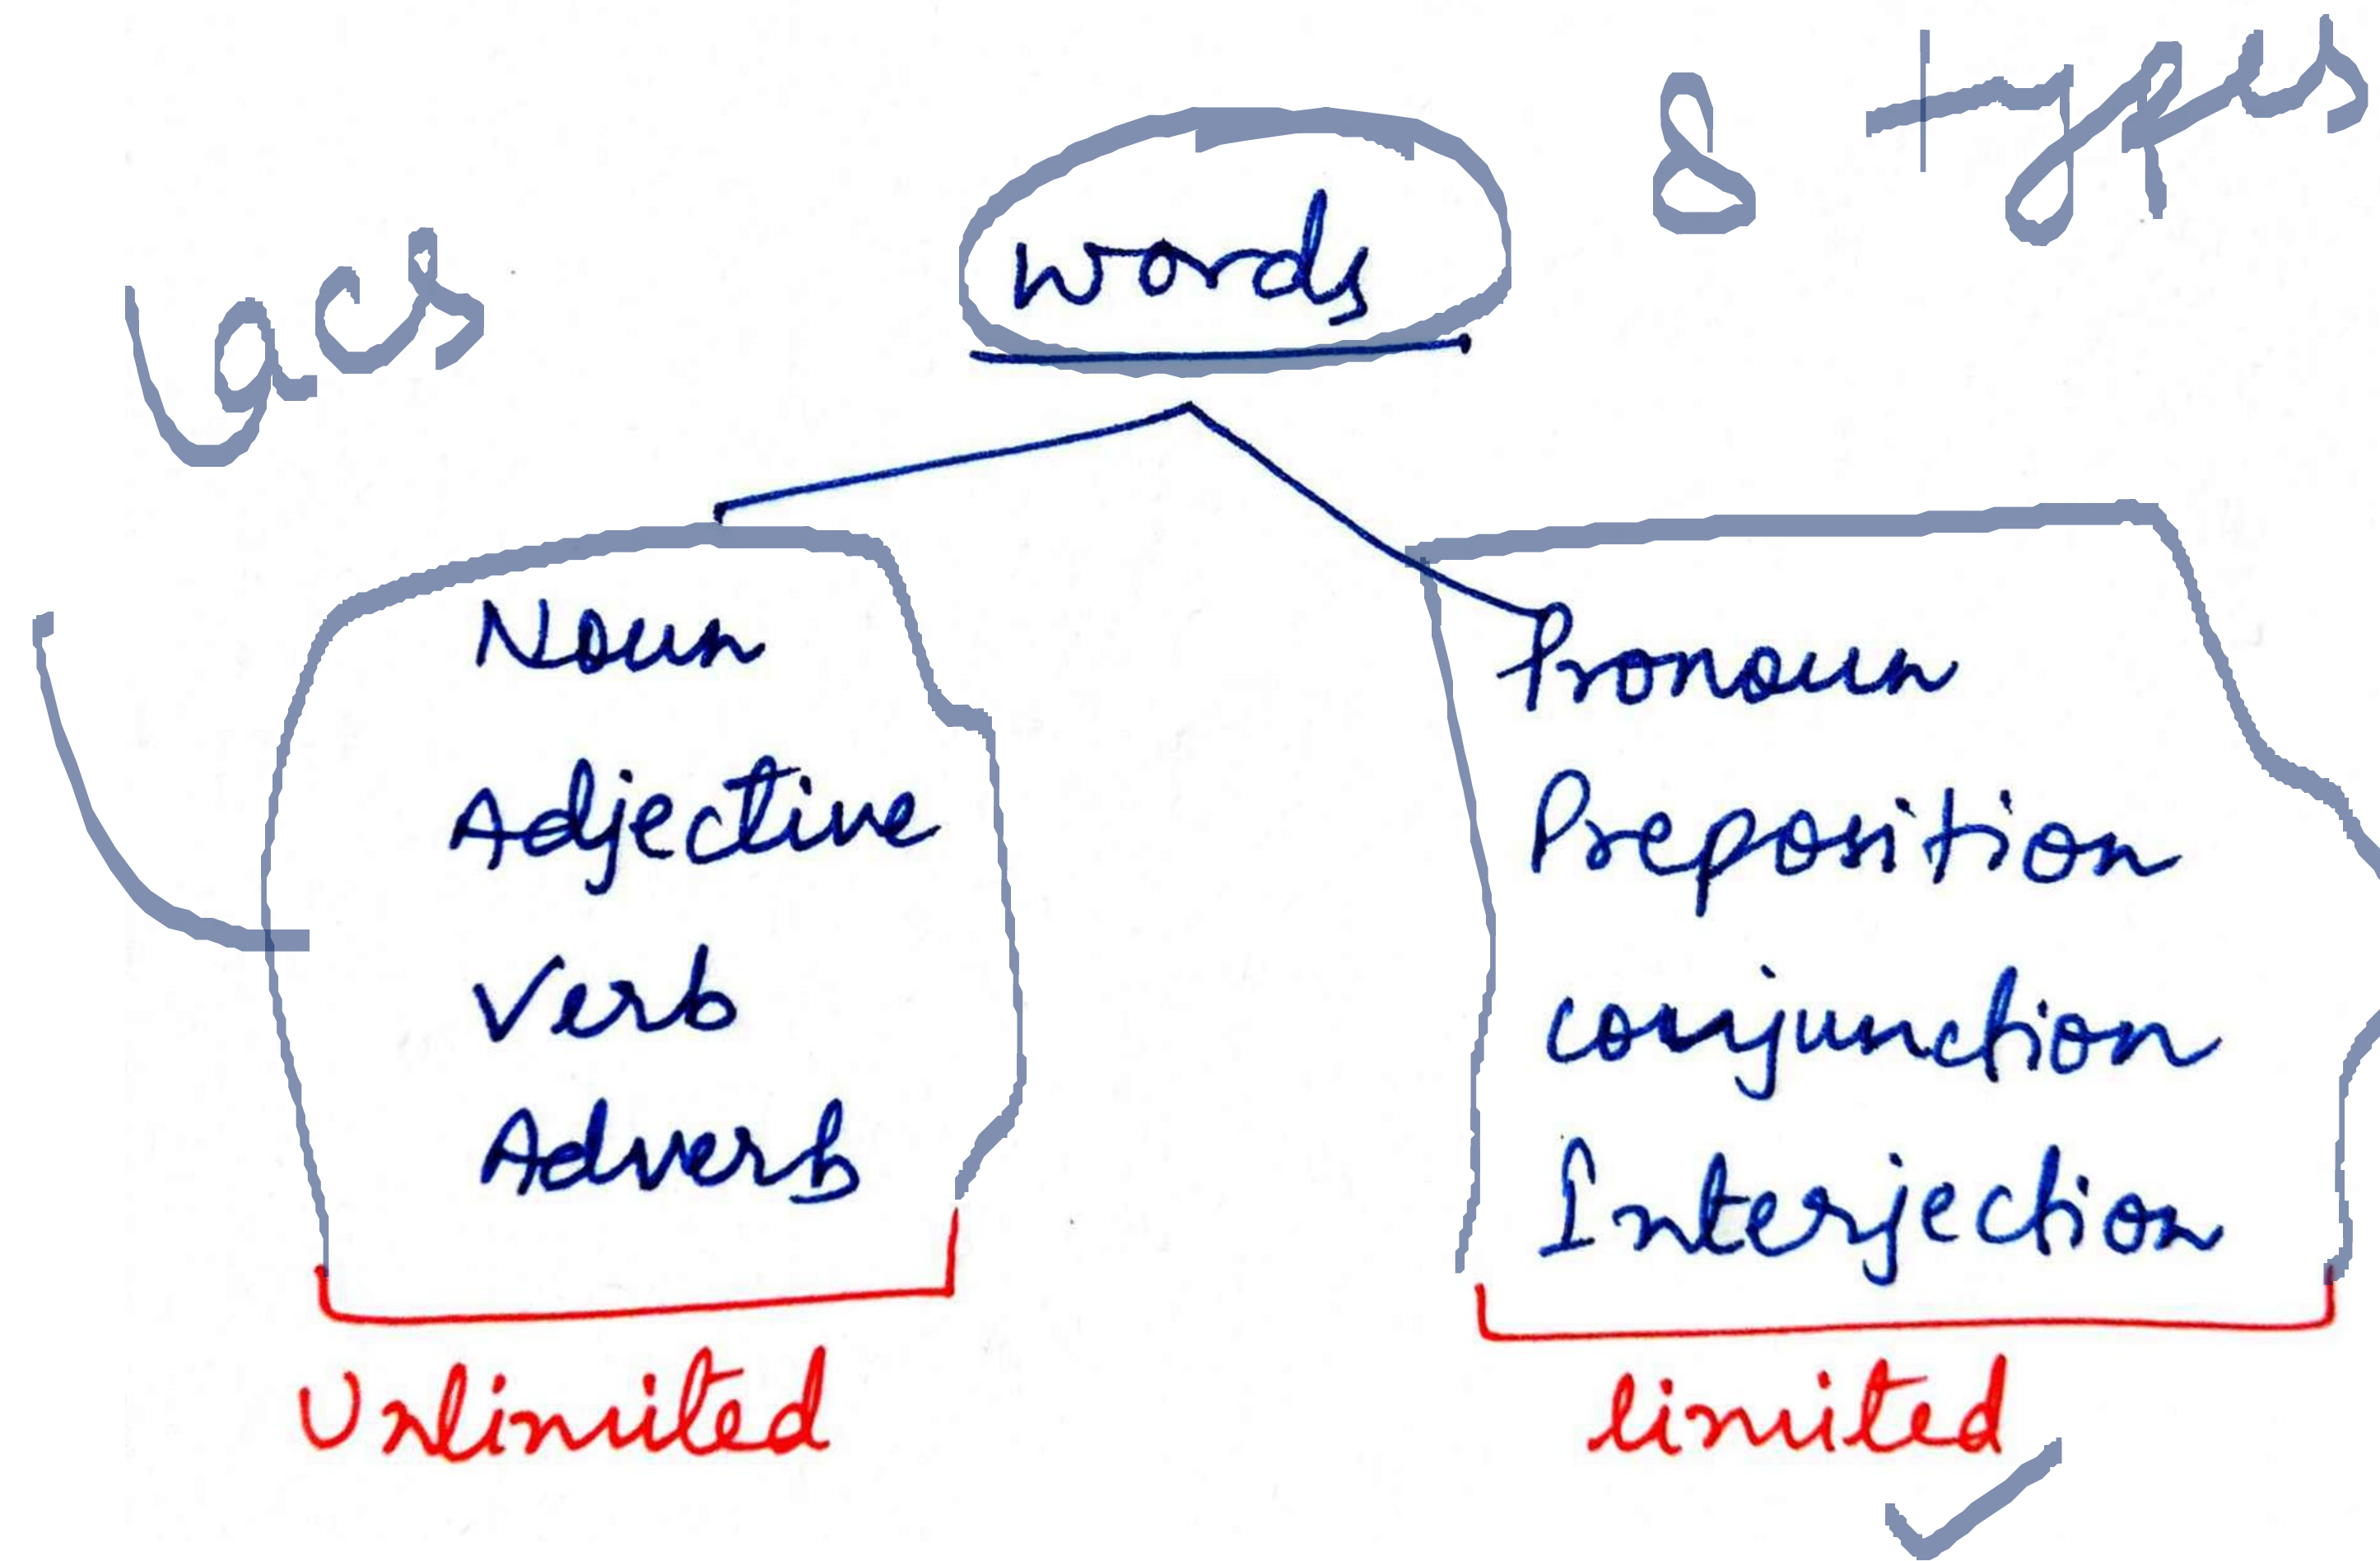 8 types
words
lacs
Noun
Adjective
Verb
Adverb
Unlimited
Pronoun
Preposition
conjunction
Interjection
limited